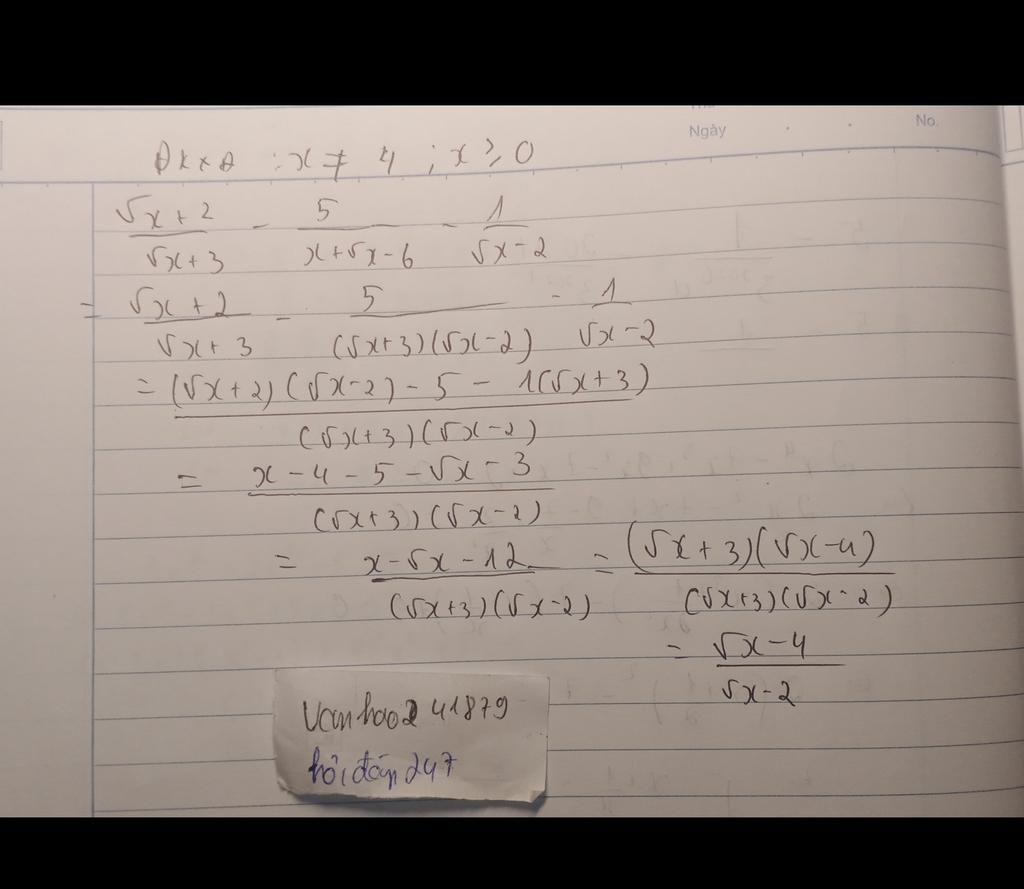 Thứ
Ngày
No.
ĐKXĐ : x ≠ 4 ; x ≥ 0
(√x + 2)/(√x + 3) - 5/(x + √x - 6) - 1/(√x - 2)
= (√x + 2)/(√x + 3) - 5/((√x + 3)(√x - 2)) - 1/(√x - 2)
= ((√x + 2)(√x - 2) - 5 - 1(√x + 3))/((√x + 3)(√x - 2))
= (x - 4 - 5 - √x - 3)/((√x + 3)(√x - 2))
= (x - √x - 12)/((√x + 3)(√x - 2)) = ((√x + 3)(√x - 4))/((√x + 3)(√x - 2))
= (√x - 4)/(√x - 2)
vanhao241879
hỏi đáp 247